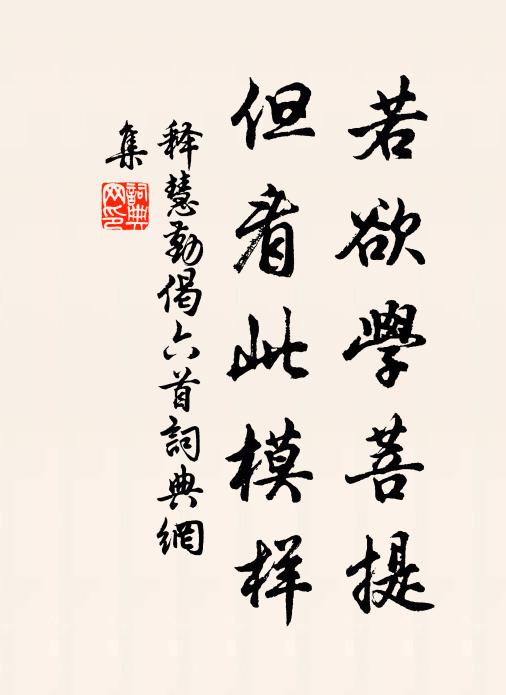 若欲學菩提
但看此模样
释慧勤偈六首詞典網
集
詞典網印